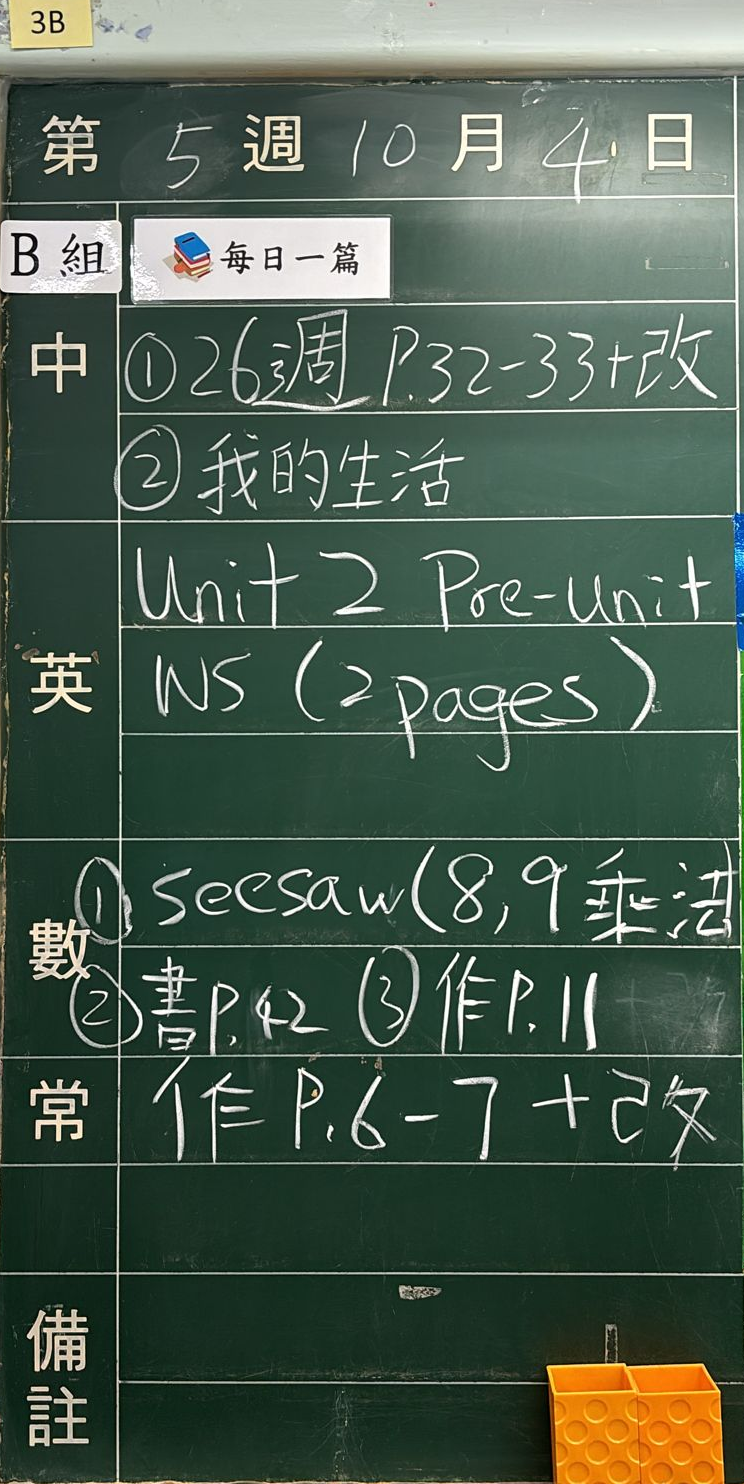 3B
第 5 週 10 月 4 日
B 組 每日一篇
中 ①26週 P.32-33+改
②我的生活
Unit 2 Pre-unit
英 WS (2pages)
①seesaw(8,9乘法
數
②書P.42 ③作P.11
常 作P.6-7+改
備
註